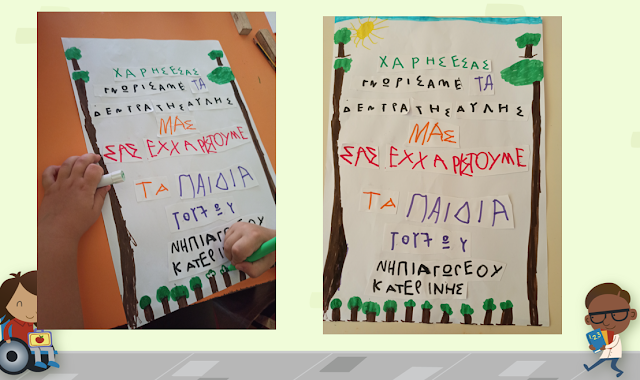 ΧΑΡΗΣΕΣΑΣ
ΓΝΩΡΙΣΑΜΕ ΤΑ
ΔΕΝΤΡΑ ΤΗΣ ΑΥΛΗΣ
ΜΑΣ
ΣΑΣ ΕΧΧΑΡΙΣΤΟΥΜΕ
ΤΑ ΠΑΙΔΙΑ
ΤΟΥ 7 ΩΥ
ΝΗΠΙΑΓΩΓΕΟΥ
ΚΑΤΕΡΙΝ
ΧΑΡΗΣΕΣΑΣ
ΓΝΩΡΙΣΑΜΕ ΤΑ
ΔΕΝΤΡΑ ΤΗΣ ΑΥΛΗΣ
ΜΑΣ
ΣΑΣ ΕΧΧΑΡΙΣΤΟΥΜΕ
ΤΑ ΠΑΙΔΙΑ
ΤΟΥ 7 ΩΥ
ΝΗΠΙΑΓΩΓΕΟΥ
ΚΑΤΕΡΙΝΗΣ
123